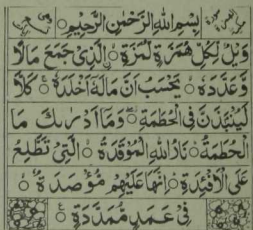 بِسْمِ اللهِ الرَّحْمٰنِ الرَّحِيْمِ
وَيْلٌ لِّكُلِّ هُمَزَةٍ لُّمَزَةِ ۙ الَّذِيْ جَمَعَ مَالًا
وَّعَدَّدَهٗ ۙ يَحْسَبُ اَنَّ مَالَهٗٓ اَخْلَدَهٗ ۚ كَلَّا
لَيُنْۢبَذَنَّ فِي الْحُطَمَةِ ۖ وَمَآ اَدْرٰىكَ مَا
الْحُطَمَةُ ۗ نَارُ اللهِ الْمُوْقَدَةُ ۙ الَّتِيْ تَطَّلِعُ
عَلَى الْاَفْـِٕدَةِ ۗ اِنَّهَا عَلَيْهِمْ مُّؤْصَدَةٌ ۙ
فِيْ عَمَدٍ مُّمَدَّدَةٍ ۧ